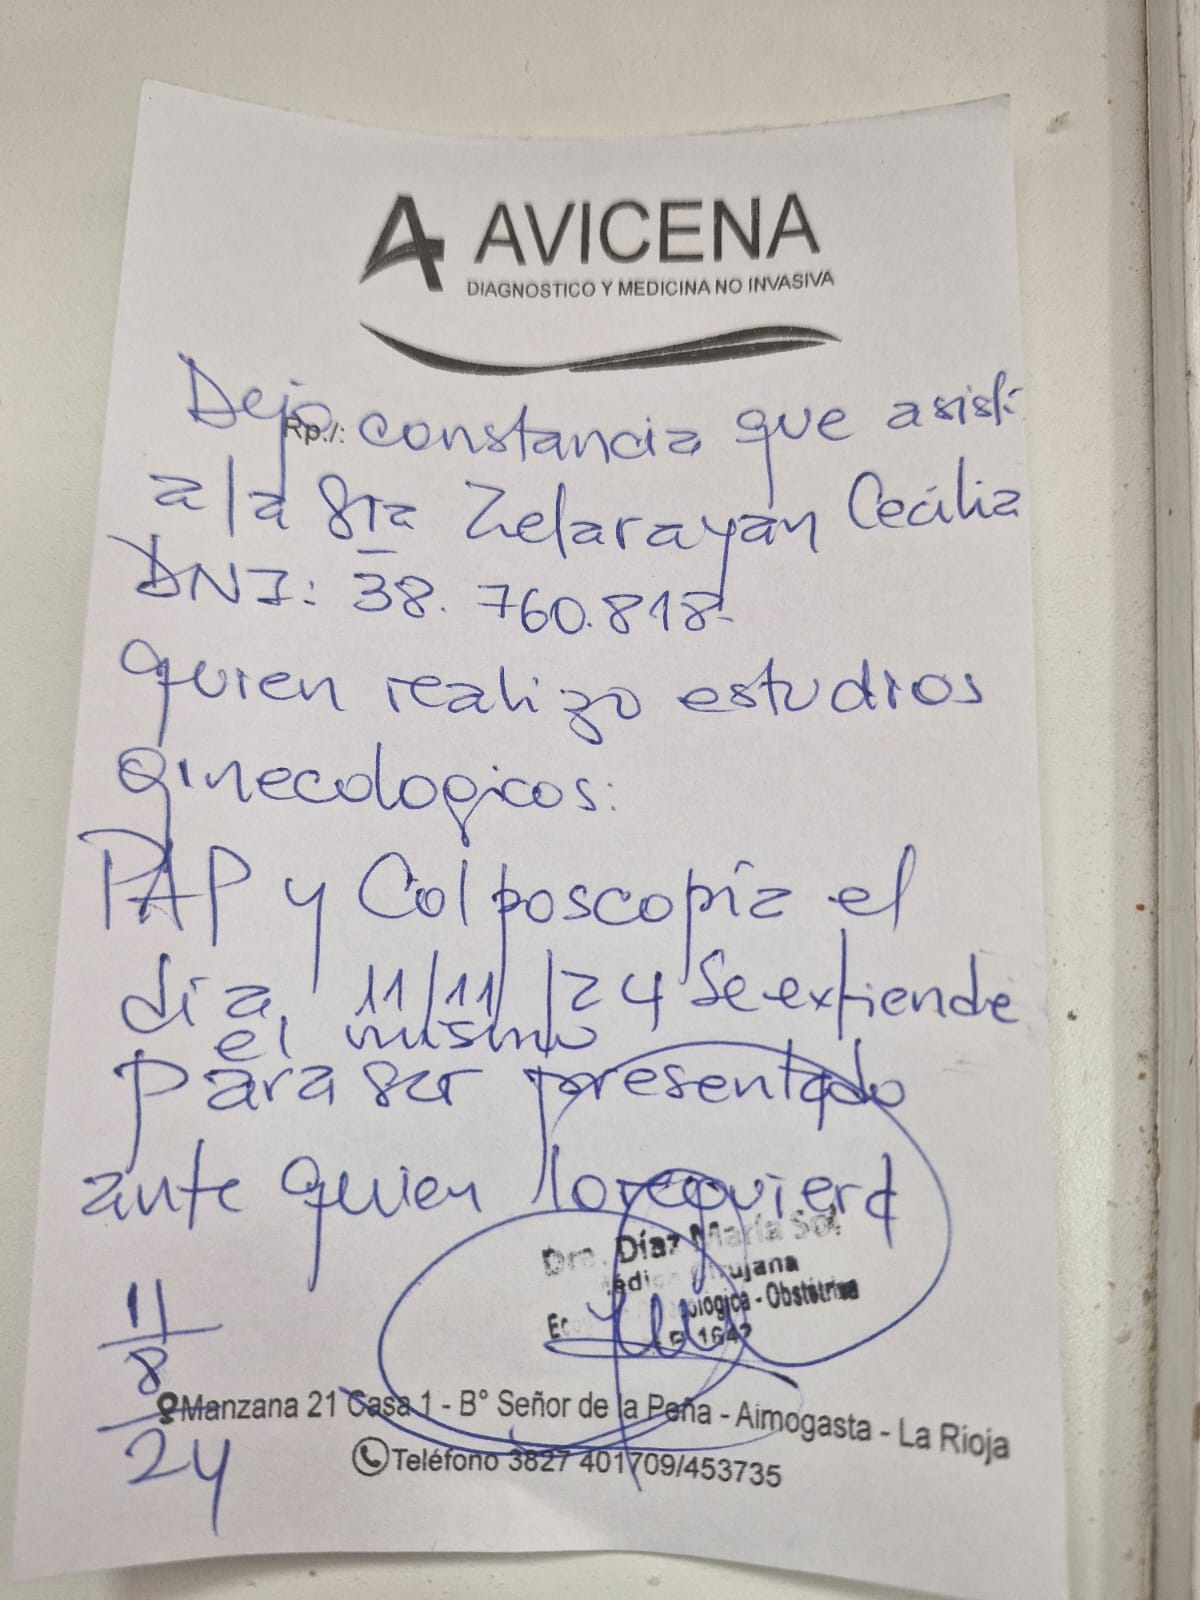 AVICENA
DIAGNOSTICO Y MEDICINA NO INVASIVA
Rp./:
Dejo constancia que asistí
a la Srta Zelarayan Cecilia
DNI: 38.760.818-
quien realizo estudios
ginecologicos:
PAP y Colposcopía el
día 11/11/24 Se extiende
el mismo
para ser presentado
ante quien lo requiera
Dra. Díaz María Sol
Obstétrica
1642
11
8
24
Manzana 21 Casa 1 - B° Señor de la Peña - Aimogasta - La Rioja
Teléfono 3827 401709/453735